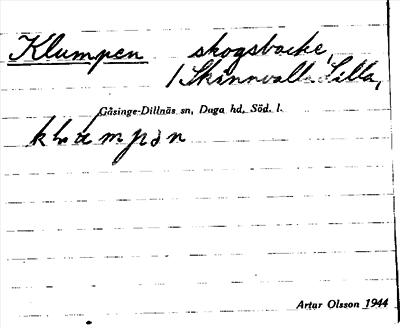 Klumpen skogsbacke,
/ Skännvalla Lilla,
Gåsinge-Dillnäs sn, Daga hd, Söd. l.
Artur Olsson 1944